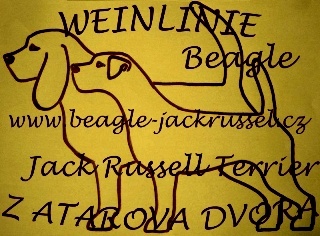 WEINLINIE
Beagle
www.beagle-jackrussel.cz
Jack Russell Terrier
Z ATAROVA DVORA